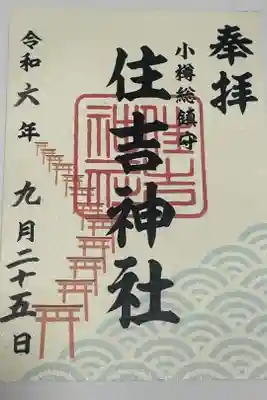 奉拝
小樽総鎮守
住吉神社
令和六年 九月二十五日
住吉神社